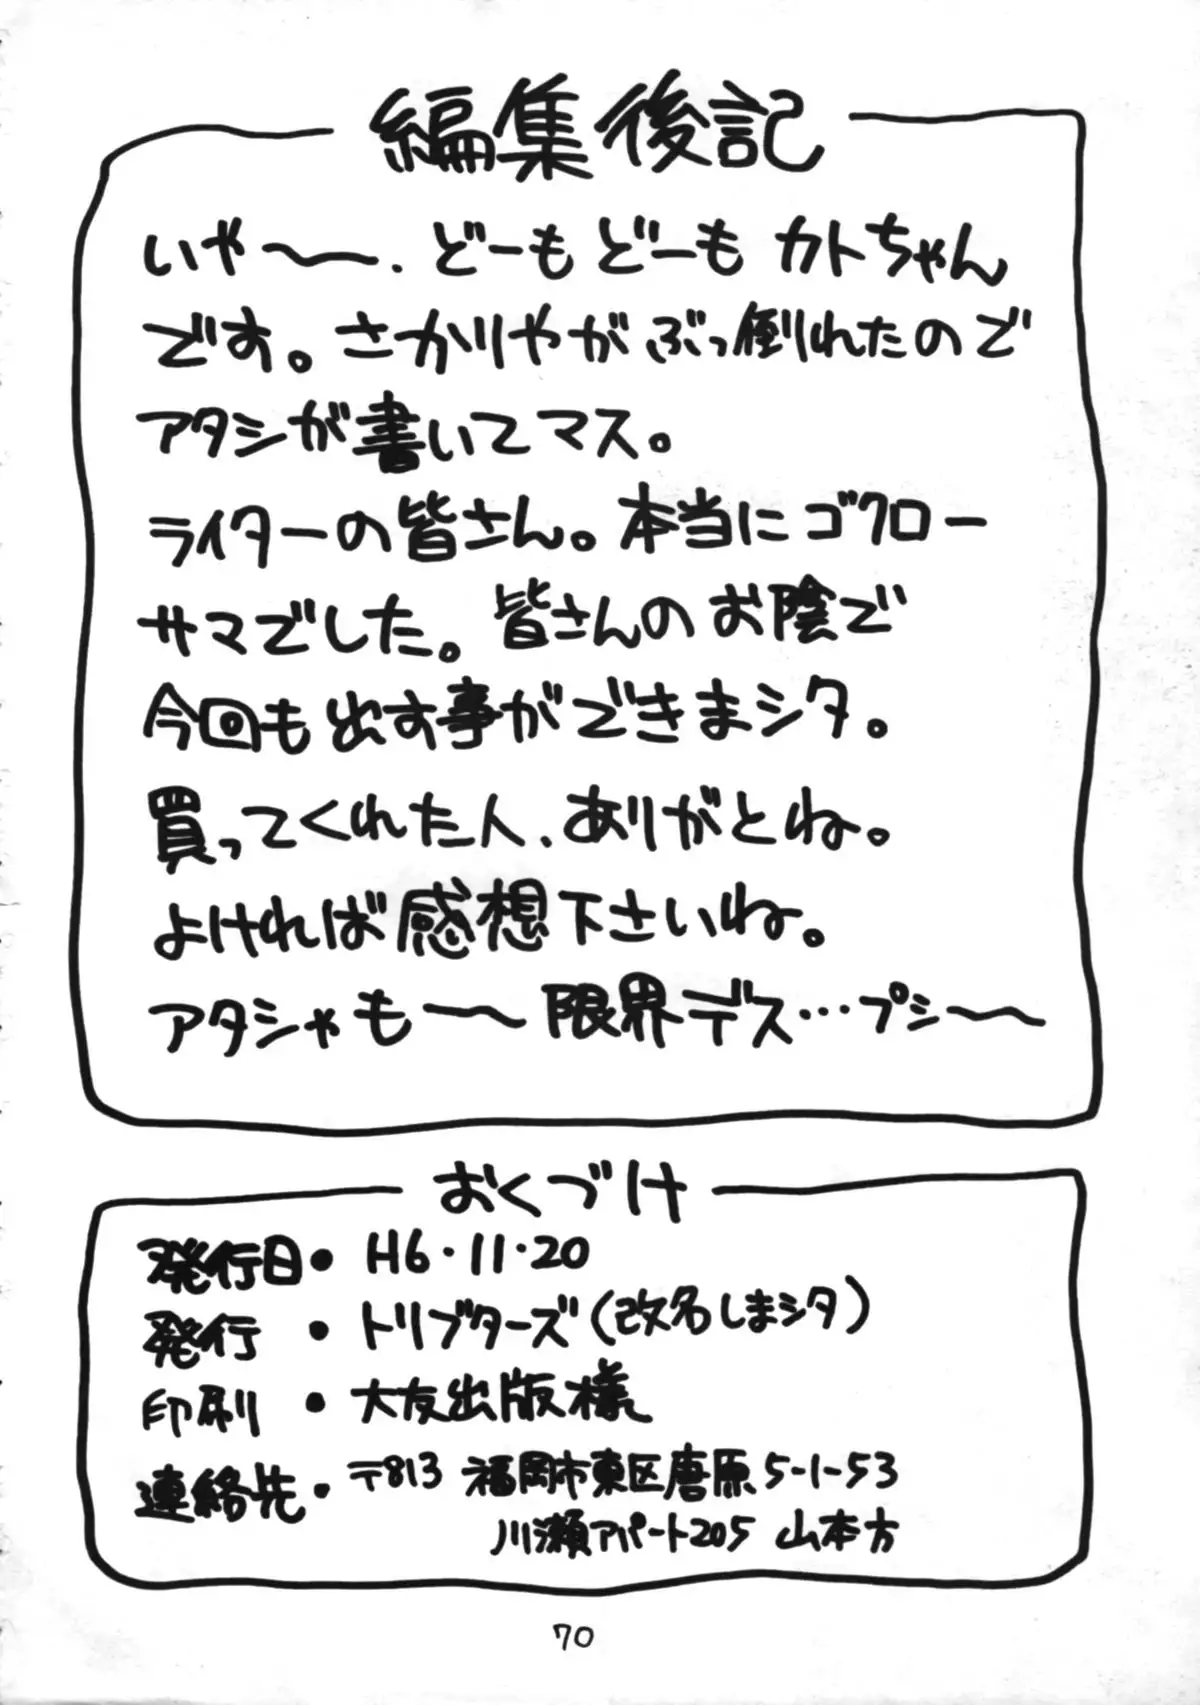 編集後記
いや〜〜、どーもどーもカトちゃん
です。さかりやがぶっ倒れたので
アタシが書いてマス。
ライターの皆さん。本当にゴクロー
サマでした。皆さんのお陰で
今回も出す事ができまシタ。
買ってくれた人、ありがとね。
よければ感想下さいね。
アタシゃも〜〜限界デス…プシ〜〜
おくづけ
発行日・H6・11・20
発行・トリブターズ(改名しまシタ)
印刷・大友出版様
連絡先・〒813 福岡市東区唐原5-1-53
川瀬アパート205 山本方
70